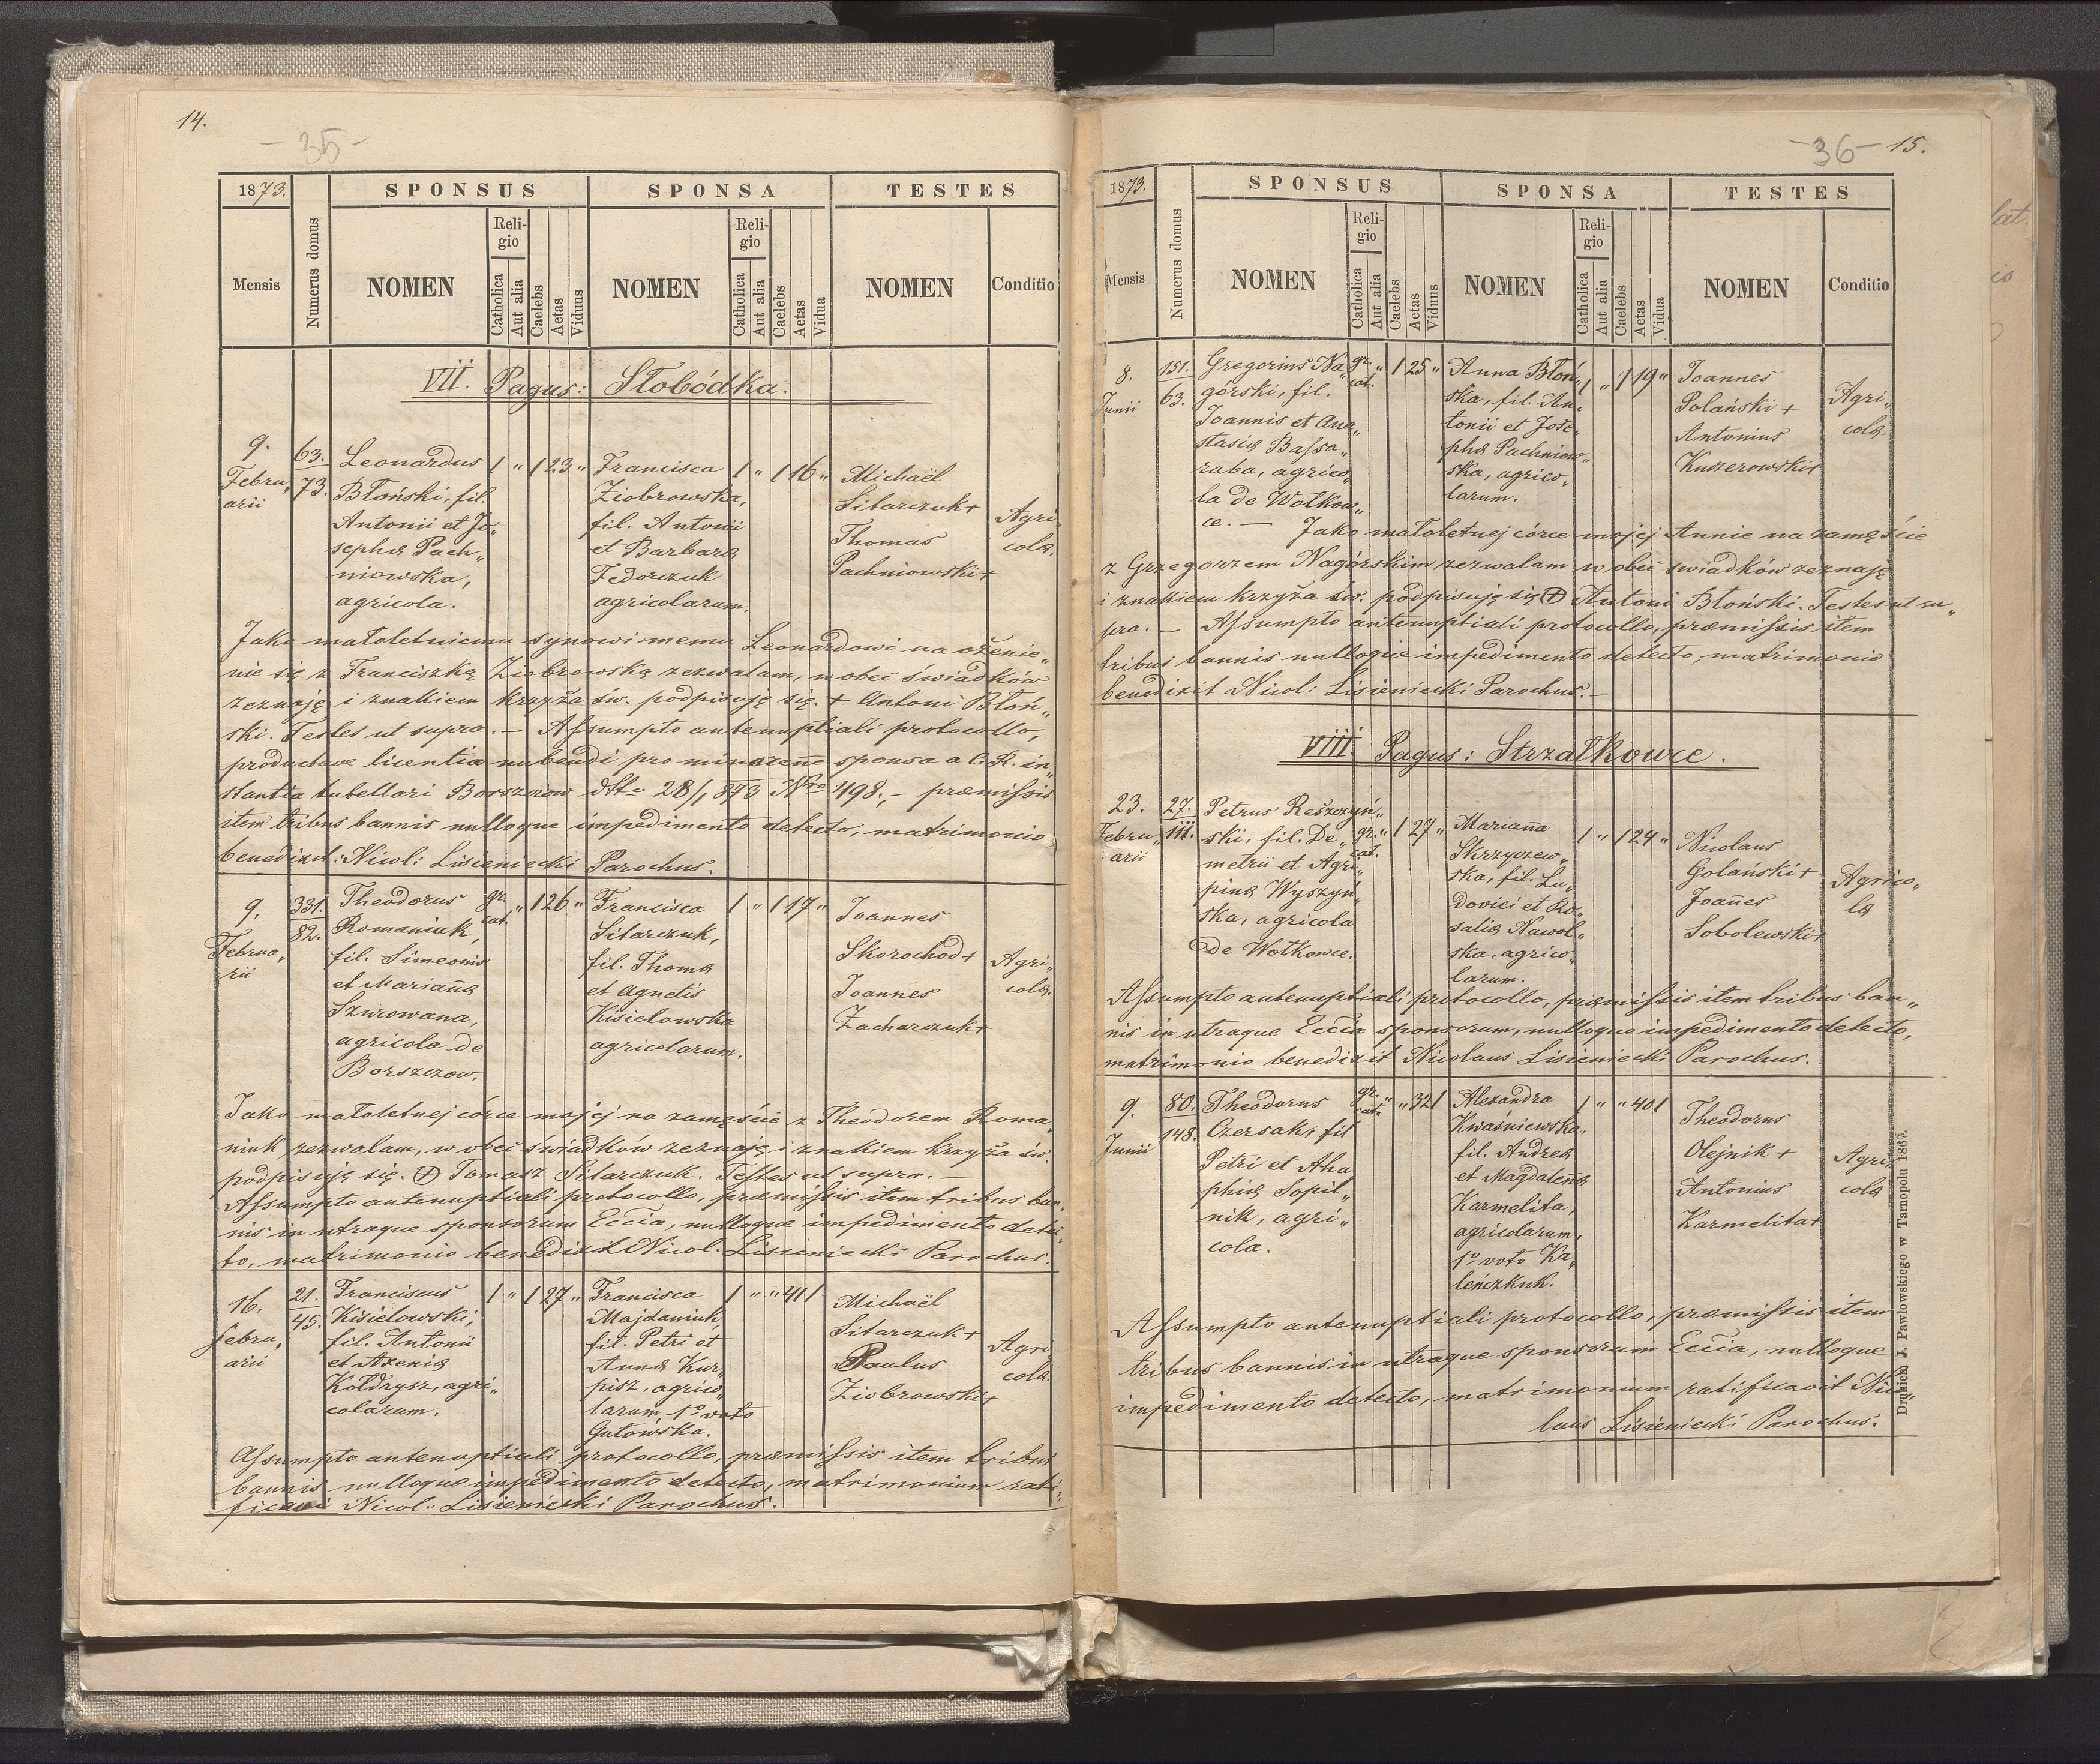 14.
- 35 -
1873.
Mensis
Numerus domus
SPONSUS
NOMEN
Reli-
gio
Catholica
Aut alia
Caelebs
Aetas
Viduus
SPONSA
NOMEN
Reli-
gio
Catholica
Aut alia
Caelebs
Aetas
Vidua
TESTES
NOMEN
Conditio
VII. Pagus: Słobódka.
9.
Febru„
arii
63.
73.
Leonardus
Błoński, fil.
Antonii et Jo„
sephæ Pach„
niowska,
agricola.
1 " 1 23 "
Francisca
Ziobrowska,
fil. Antonii
et Barbaræ
Fedorczuk
agricolarum.
1 " 1 16 "
Michaël
Sitarczuk +
Thomas
Pachniowski +
Agri„
colæ.
Jako małoletniemu synowi memu Leonardowi na ożenie„
nie się z Franciszką Ziobrowską zezwalam, wobec świadków
zeznaję i znakiem krzyża św. podpisuję się. + Antoni Błoń„
ski. Testes ut supra. — Assumpto antenuptiali protocollo,
productave licentia nubendi pro minorenne sponsa a C. R. in„
stantia tabellari Borszczow dtto 28/1 873 Nro 498., — præmissis
item tribus bannis nulloque impedimento detecto, matrimonio
benedixit: Nicol: Lisieniecki Parochus.
9.
Februa„
rii
331.
82.
Theodorus
Romaniuk,
fil. Simeonis
et Marianæ
Szurowana,
agricola de
Borszczow.
gr.
cat.
" 1 26 "
Francisca
Sitarczuk,
fil. Thomæ
et Agnetis
Kisielowska
agricolarum.
1 " 1 17 "
Joannes
Skorochod +
Joannes
Zacharczuk +
Agri„
colæ.
Jako małoletnej córce mojej na zamęście z Theodorem Roma„
niuk zezwalam, w obec świadków zeznaję i znakiem krzyża św.
podpisuję się. + Tomasz Sitarczuk. Testes ut supra. —
Assumpto antenuptiali protocollo, præmissis item tribus ban„
nis in utraque sponsorum Eccia, nulloque impedimento detec„
to, matrimonio benedixit Nicol. Lisieniecki Parochus.
16.
Febru„
arii
21.
45.
Franciscus
Kisielowski,
fil. Antonii
et Axeniæ
Kołdrysz, agri„
colarum.
1 " 1 27 "
Francisca
Majdaniuk,
fil. Petri et
Annæ Kur„
pisz, agrico„
larum, 1o voto
Gutowska.
1 " " 41 1
Michaël
Sitarczuk +
Paulus
Ziobrowski +
Agri
colæ.
Assumpto antenuptiali protocollo, præmissis item tribus
bannis nulloque impedimento detecto, matrimonium rati„
ficavi Nicol: Lisieniecki Parochus.
- 36 - 15.
1873.
Mensis
Numerus domus
SPONSUS
NOMEN
Reli-
gio
Catholica
Aut alia
Caelebs
Aetas
Viduus
SPONSA
NOMEN
Reli-
gio
Catholica
Aut alia
Caelebs
Aetas
Vidua
TESTES
NOMEN
Conditio
8.
Junii
151.
63.
Gregorius Na„
górski, fil.
Joannis et Ana„
stasiæ Bassa„
raba, agrico„
la de Wołkow„
ce. —
gr.
cat.
" 1 25 "
Anna Błoń„
ska, fil. An„
tonii et Jose„
phæ Pachniow„
ska, agrico„
larum.
1 " 1 19 "
Joannes
Polański +
Antonius
Kuzerowski +
Agri„
colæ.
Jako małoletnej córce mojej Annie na zamęście
z Grzegorzem Nagórskim zezwalam w obec świadków zeznaję
i znakiem krzyża św. podpisuję się + Antoni Błoński. Testes ut su„
pra. — Assumpto antenuptiali protocollo, præmissis item
tribus bannis nulloque impedimento detecto, matrimonio
benedixit Nicol: Lisieniecki Parochus. —
VIII. Pagus: Strzałkowce.
23.
Febru„
arii
27.
111.
Petrus Reszczyń„
ski, fil. De„
metrii et Agri„
pinæ Wyszyń„
ska, agricola
de Wołkowce.
gr.
cat.
" 1 27 "
Marianna
Skrzyczew„
ska, fil. Lu„
dovici et Ro„
saliæ Nawol„
ska, agrico„
larum.
1 " 1 24 "
Nicolaus
Golański +
Joannes
Sobolewski +
Agrico„
læ
Assumpto antenuptiali protocollo, præmissis item tribus ban„
nis in utraque Eccia sponsorum, nulloque impedimento detecto,
matrimonio benedixit Nicolaus Lisieniecki Parochus.
9.
Junii
80.
148.
Theodorus
Czersak, fil
Petri et Aha
phiæ Sopil„
nik, agri„
cola.
gr.
cat.
" " 32 1
Alexandra
Kwaśniewska,
fil. Andreæ
et Magdalenæ
Karmelita,
agricolarum,
1o voto Ka„
leńczkuk.
1 " " 40 1
Theodorus
Olejnik +
Antonius
Karmelita +
Agri
colæ
Assumpto antenuptiali protocollo, præmissis item
tribus bannis in utraque sponsorum Eccia, nulloque
impedimento detecto, matrimonium ratificavit Nico„
laus Lisieniecki Parochus.
Drukiem J. Pawłowskiego w Tarnopolu 1867.